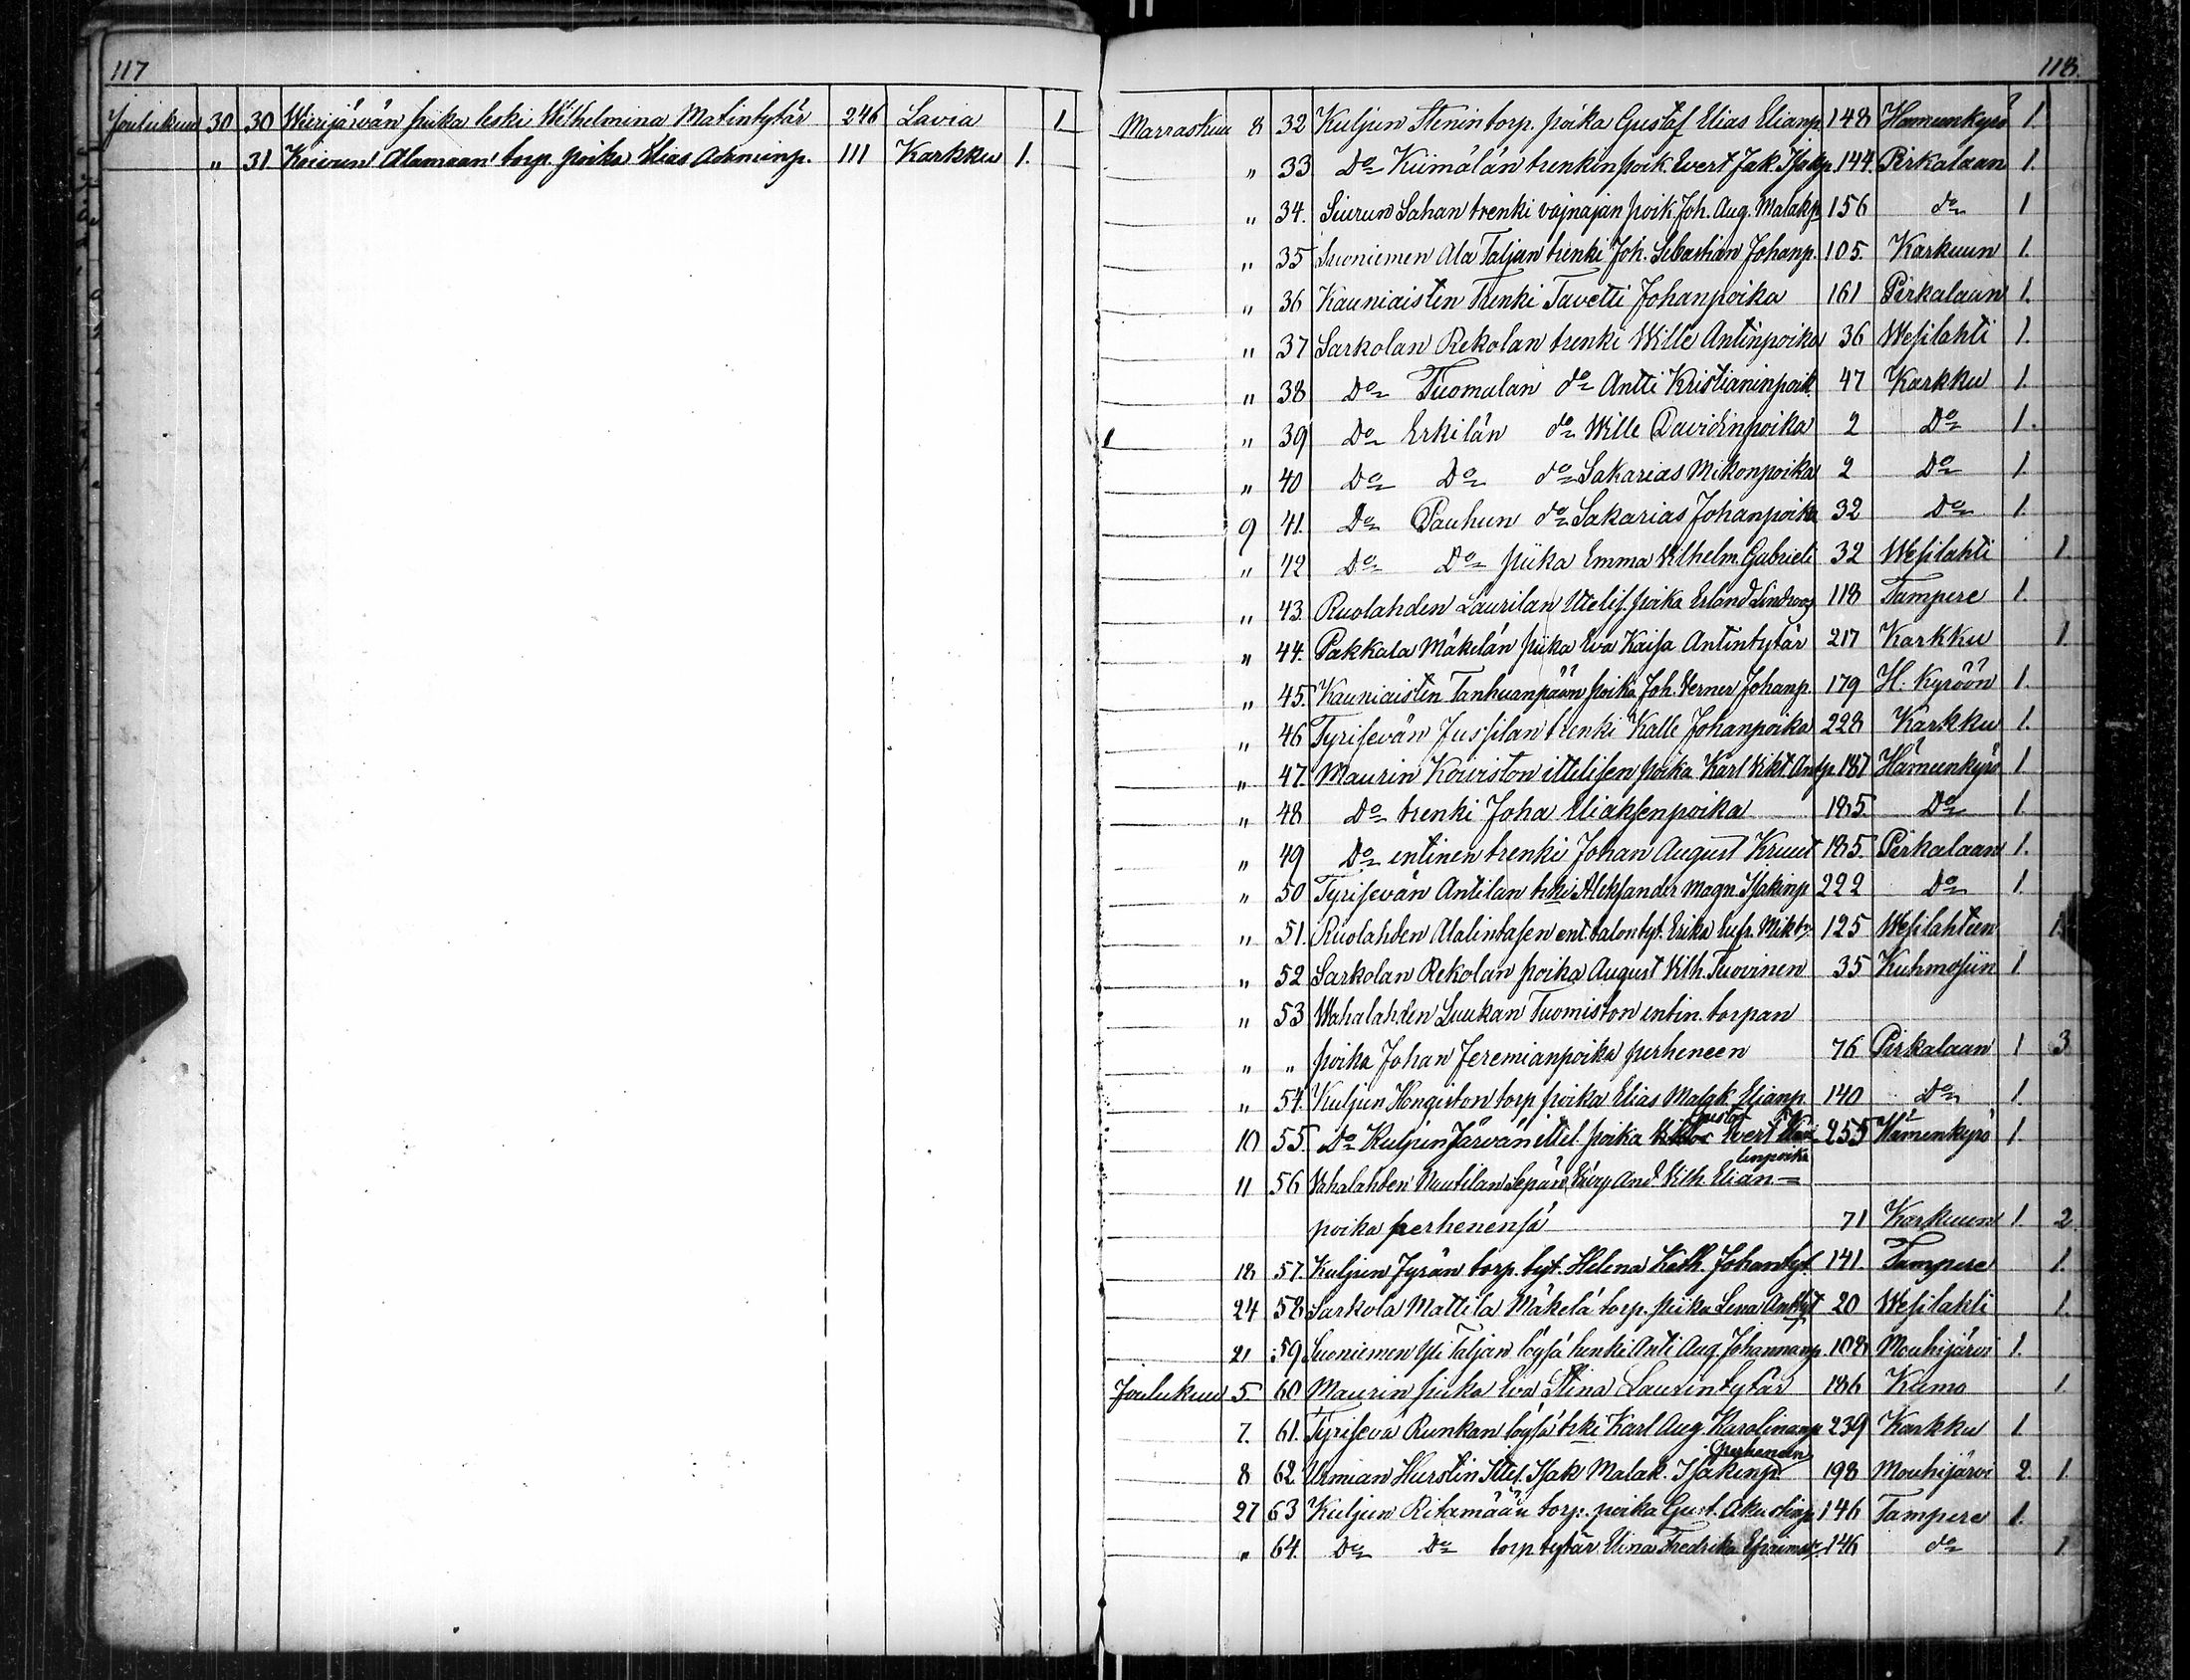 117
Joulukuu 30 30 Wierijärwän piika leski Wilhelmina Matintytär 246 Lavia 1
" 31. Koivun Alamaan torp. poika Elias Adaminp. 111 Karkku 1.
118.
Marraskuu 8 32 Kuljun Stenin torp. poika Gustaf Elias Elianp. 148 Hämeenkyrö 1.
" 33 Do Kiimälän trenkin poik. Evert Jak. 144. Pirkalaan 1.
" 34. Siurun Sahan trenki vajnajan poik Joh. Aug. Malakp 156 do 1
" 35 Suoniemen Ala Taljan trenki Joh. Sebastian Johanp. 105. Karkuun 1.
" 36 Kauniaisten Trenki Tavetti Johanpoika 161 Pirkalaan 1.
" 37 Sarkolan Rekolan trenki Wille Antinpoika 36 Wesilahti 1.
" 38 Do Tuomalan do Antti Kristianinpoik. 47 Karkku 1.
" 39 Do Erkilän do Wille Davidinpoika 2 Do 1.
" 40 Do Do do Sakarias Mikonpoika 2 Do 1
9 41. Do Pauhun do Sakarias Johanpoika 32 Do 1.
" 42 Do Do piika Emma Vilhelm. Gabrieli 32 Wesilahti 1
" 43. Ruolahden Laurilan Itelis. poika Erland Lindroos 118 Tampere 1.
" 44. Pakkala Mäkelän piika Eva Kaisa Antintytär 217 Karkku 1.
" 45. Kauniaisten Tanhuanpään poika Joh. Verner Johanp. 179 H. Kyröön 1.
" 46 Tyrisevän Jussilan trenki Kalle Johanpoika 228 Karkku 1.
" 47. Maurin Koiviston ittelisen poika Karl Vikt. Antp. 187 Hämeenkyrö 1
" 48 Do trenki Joha Eliaksenpoika 185. Do 1.
" 49 Do entinen trenki Johan August Kruut 185. Pirkalaan 1.
" 50 Tyrisevän Antilan trki Aleksander Magn. Isakinp 222 Do 1.
" 51. Ruolahden Alalintasen ent. talontyt. Erika Eufr. Miktr. 125 Wesilahteen 1.
" 52 Sarkolan Rekolan poika August Vilh. Tuovinen 35 Kuhmosiin 1
" 53 Wahalahden Luukan Tuomiston entin. torpan
" " poika Johan Jeremianpoika perheneen 76 Pirkalaan 1 3
" 54. Kuljun Hongiston torp poika Elias Malak. Elianp. 140 Do 1.
10 55. Do Kuljun Järvän ittel. poika Gustaf Evert 255 Hämenkyrö 1.
11 56 Vahalahden Nuutilan Sepän And Vilh. Elian=
poika perhenensä 71 Karkuun 1. 2.
18 57. Kuljun Jyrän torp. tyt. Helena Kath. Johantyt. 141. Tampere 1.
24 58 Sarkola Mattila Mäkelä torp. piika Lena Anttyt 20 Wesilahti 1.
21 59 Suoniemen Yli Taljan löysä henki Anti Aug. Johannanp. 108 Mouhijärvi 1.
Joulukuu 5. 60 Maurin piika Eva Stina Laurintytär 186 Kumo 1.
7. 61. Tyrisevä Runkan löysä trki Karl Aug. Karolinanp 239 Karkku 1
8 62. Urmian Hurstin Ittel. Isak Malak. Isakinp. perheneen 198 Mouhijärvi 2. 1.
27 63 Kuljun Ritamään torp. poika Gust. Akustinp 146 Tampere 1.
" 64. Do Do torp tytär Elina Fredrika 146 do 1